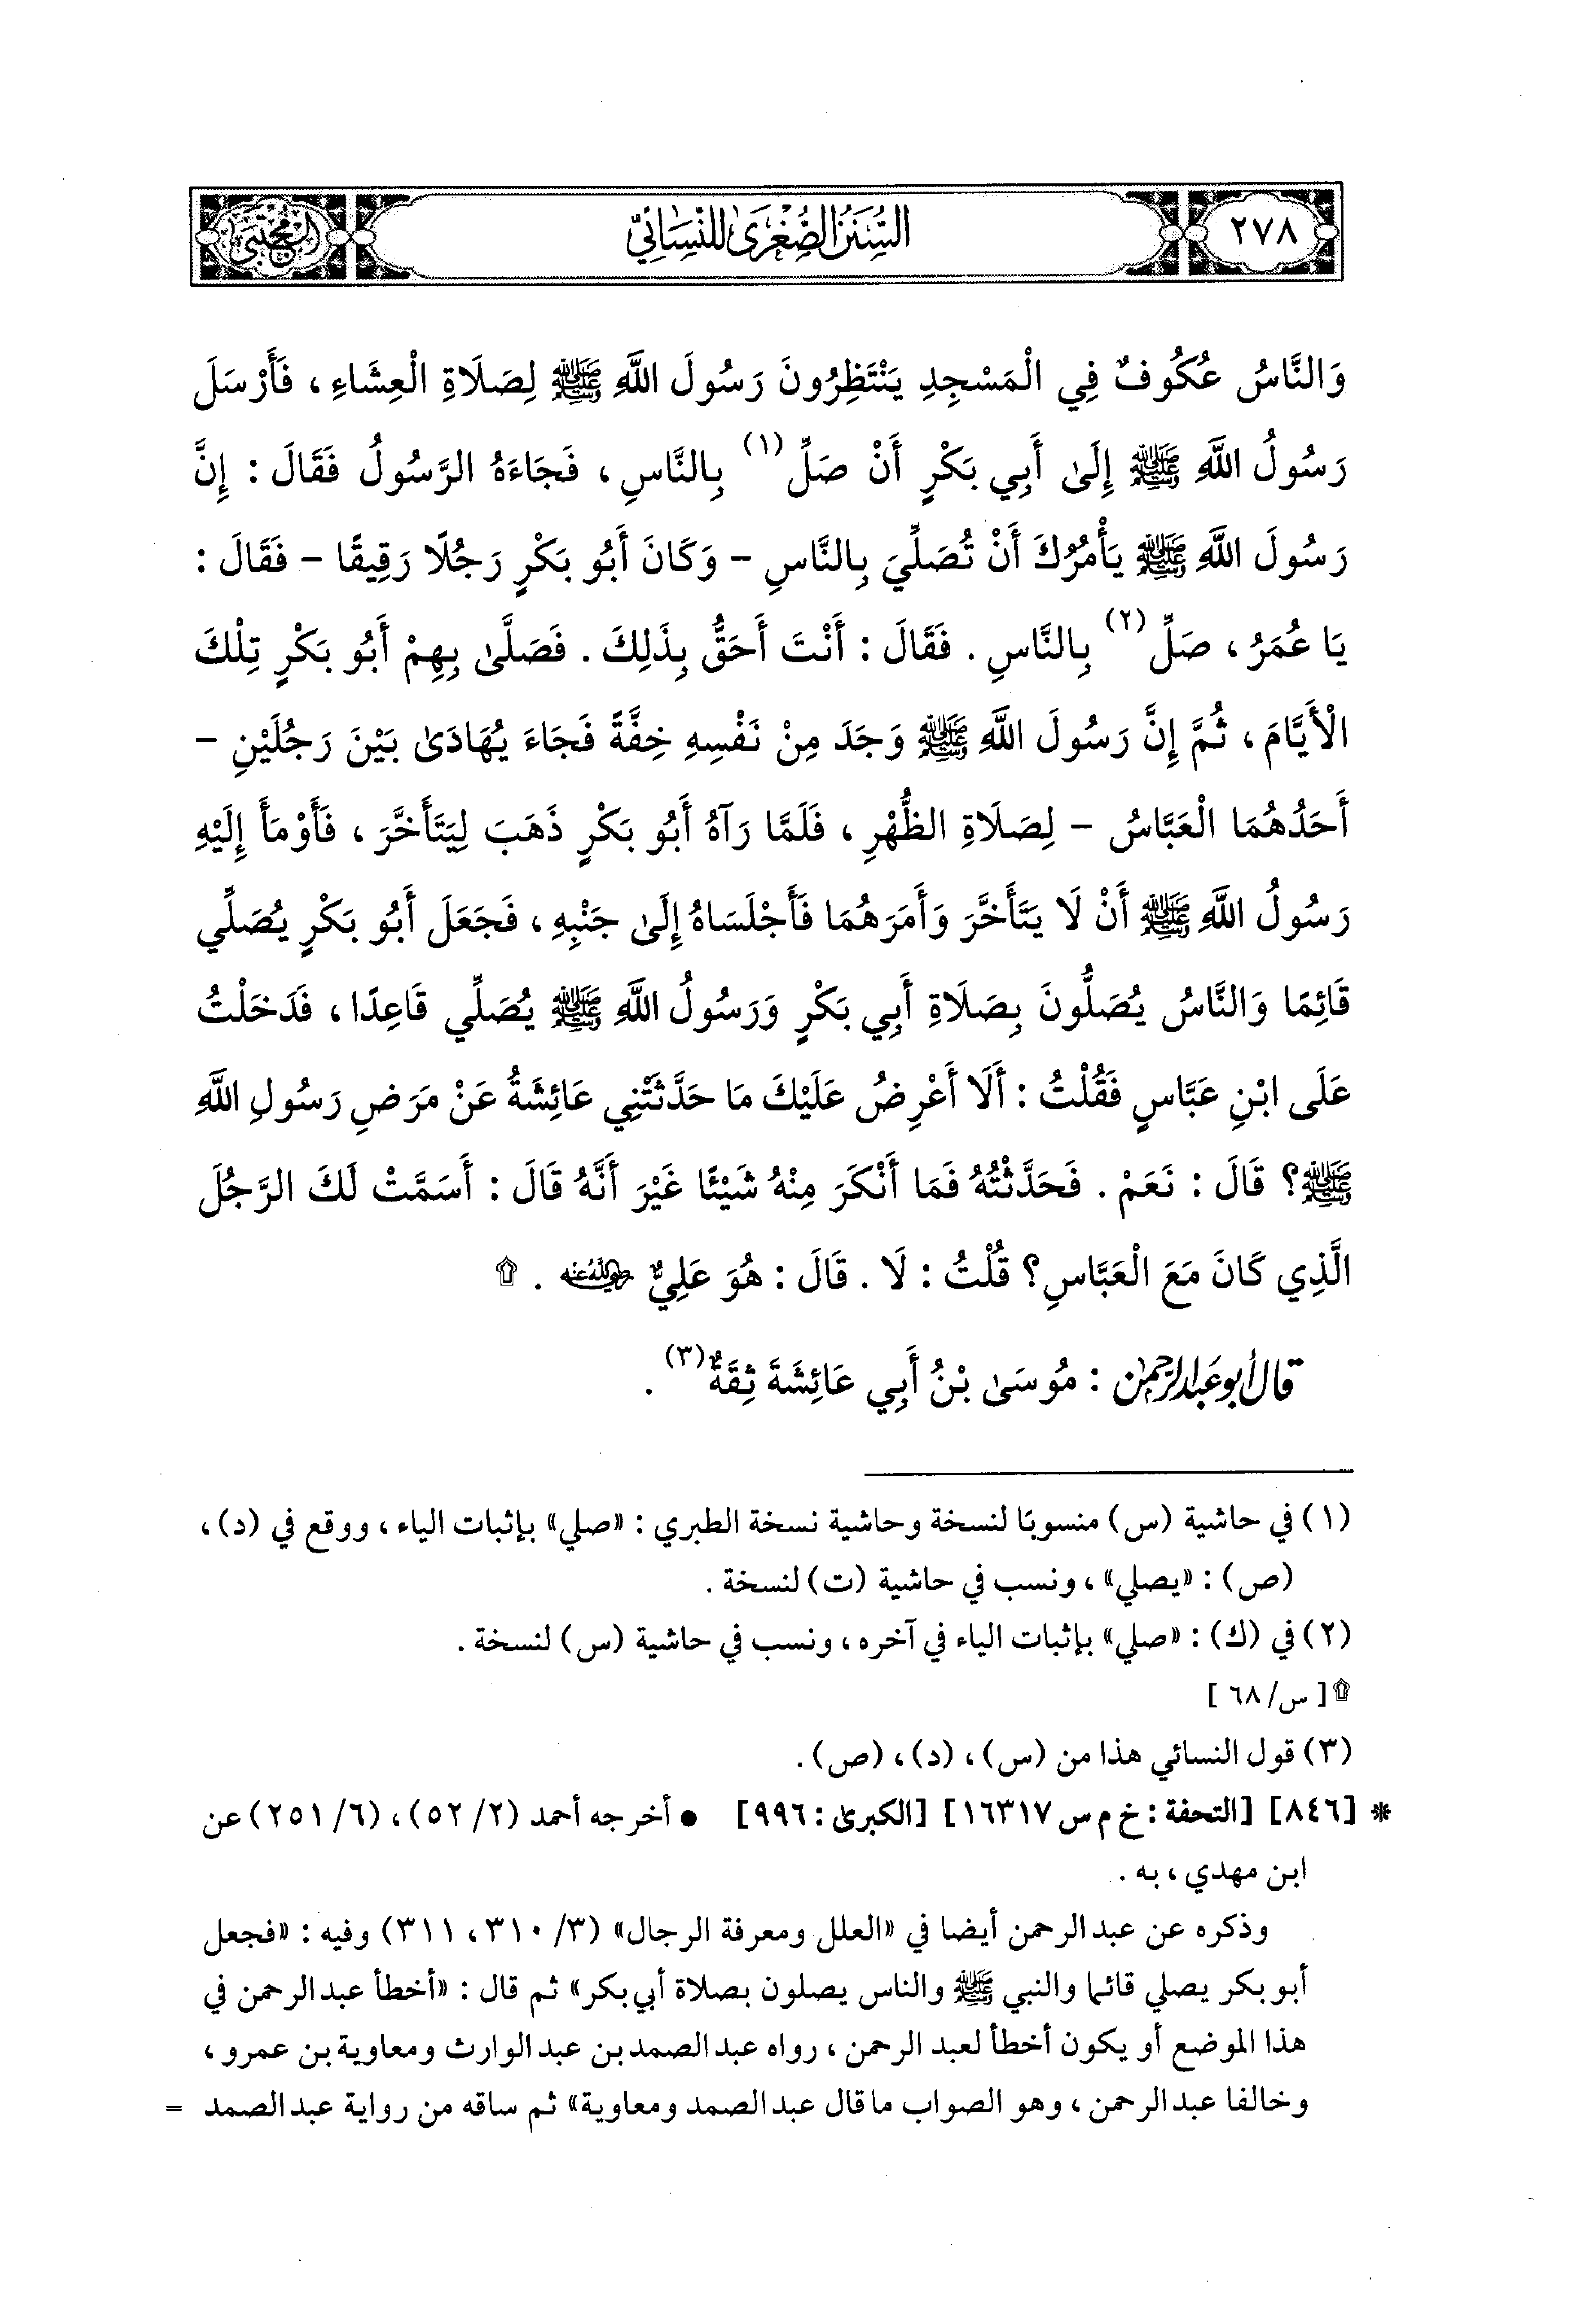 ٢٧٨ السُّنَنُ الصُّغْرَىٰ لِلنَّسَائِيِّ المجتبى
وَالنَّاسُ عُكُوفٌ فِي الْمَسْجِدِ يَنْتَظِرُونَ رَسُولَ اللَّهِ ﷺ لِصَلَاةِ الْعِشَاءِ ، فَأَرْسَلَ
رَسُولُ اللَّهِ ﷺ إِلَىٰ أَبِي بَكْرٍ أَنْ صَلِّ (١) بِالنَّاسِ ، فَجَاءَهُ الرَّسُولُ فَقَالَ : إِنَّ
رَسُولَ اللَّهِ ﷺ يَأْمُرُكَ أَنْ تُصَلِّيَ بِالنَّاسِ – وَكَانَ أَبُو بَكْرٍ رَجُلًا رَقِيقًا – فَقَالَ :
يَا عُمَرُ ، صَلِّ (٢) بِالنَّاسِ . فَقَالَ : أَنْتَ أَحَقُّ بِذَلِكَ . فَصَلَّىٰ بِهِمْ أَبُو بَكْرٍ تِلْكَ
الْأَيَّامَ ، ثُمَّ إِنَّ رَسُولَ اللَّهِ ﷺ وَجَدَ مِنْ نَفْسِهِ خِفَّةً فَجَاءَ يُهَادَىٰ بَيْنَ رَجُلَيْنِ –
أَحَدُهُمَا الْعَبَّاسُ – لِصَلَاةِ الظُّهْرِ ، فَلَمَّا رَآهُ أَبُو بَكْرٍ ذَهَبَ لِيَتَأَخَّرَ ، فَأَوْمَأَ إِلَيْهِ
رَسُولُ اللَّهِ ﷺ أَنْ لَا يَتَأَخَّرَ وَأَمَرَهُمَا فَأَجْلَسَاهُ إِلَىٰ جَنْبِهِ ، فَجَعَلَ أَبُو بَكْرٍ يُصَلِّي
قَائِمًا وَالنَّاسُ يُصَلُّونَ بِصَلَاةِ أَبِي بَكْرٍ وَرَسُولُ اللَّهِ ﷺ يُصَلِّي قَاعِدًا ، فَدَخَلْتُ
عَلَى ابْنِ عَبَّاسٍ فَقُلْتُ : أَلَا أَعْرِضُ عَلَيْكَ مَا حَدَّثَتْنِي عَائِشَةُ عَنْ مَرَضِ رَسُولِ اللَّهِ
ﷺ؟ قَالَ : نَعَمْ . فَحَدَّثْتُهُ فَمَا أَنْكَرَ مِنْهُ شَيْئًا غَيْرَ أَنَّهُ قَالَ : أَسَمَّتْ لَكَ الرَّجُلَ
الَّذِي كَانَ مَعَ الْعَبَّاسِ؟ قُلْتُ : لَا . قَالَ : هُوَ عَلِيٌّ رضي الله عنه . ۩
قال أبو عبد الرحمن : مُوسَىٰ بْنُ أَبِي عَائِشَةَ ثِقَةٌ (٣) .
(١) في حاشية (س) منسوبًا لنسخة وحاشية نسخة الطبري : «صلي» بإثبات الياء ، ووقع في (د) ،
(ص) : «يصلي» ، ونسب في حاشية (ت) لنسخة .
(٢) في (ك) : «صلي» بإثبات الياء في آخره ، ونسب في حاشية (س) لنسخة .
۩ [ س/ ٦٨ ]
(٣) قول النسائي هذا من (س) ، (د) ، (ص) .
* [٨٤٦] [التحفة : خ م س ١٦٣١٧] [الكبرىٰ : ٩٩٦] • أخرجه أحمد (٢/ ٥٢) ، (٦/ ٢٥١) عن
ابن مهدي ، به .
وذكره عن عبد الرحمن أيضا في «العلل ومعرفة الرجال» (٣/ ٣١٠ ، ٣١١) وفيه : «فجعل
أبو بكر يصلي قائما والنبي ﷺ والناس يصلون بصلاة أبي بكر» ثم قال : «أخطأ عبد الرحمن في
هذا الموضع أو يكون أخطأ لعبد الرحمن ، رواه عبد الصمد بن عبد الوارث ومعاوية بن عمرو ،
وخالفا عبد الرحمن ، وهو الصواب ما قال عبد الصمد ومعاوية» ثم ساقه من رواية عبد الصمد =